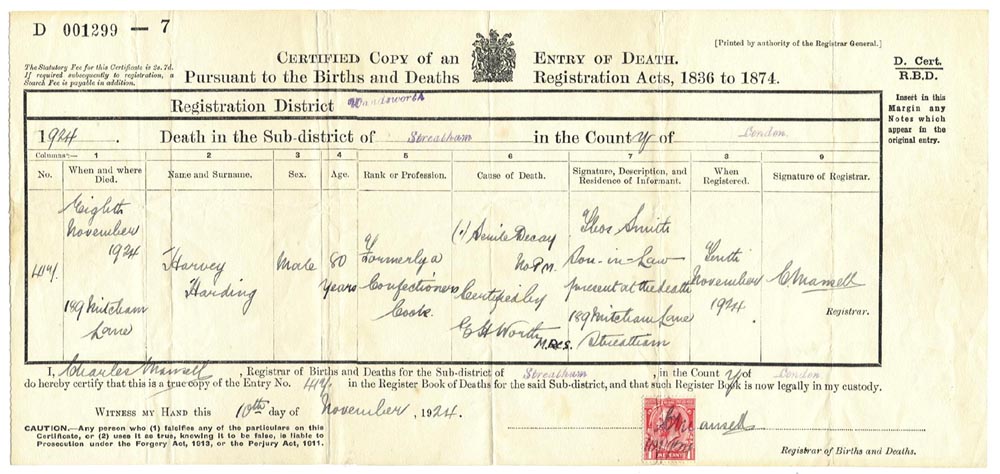 D 001299 — 7
[Printed by authority of the Registrar General.]
CERTIFIED COPY of an ENTRY OF DEATH.
Pursuant to the Births and Deaths Registration Acts, 1836 to 1874.
The Statutory Fee for this Certificate is 2s. 7d.
If required subsequently to registration, a
Search Fee is payable in addition.
D. Cert.
R.B.D.
Insert in this
Margin any
Notes which
appear in the
original entry.
Registration District Wandsworth
1924. Death in the Sub-district of Streatham in the County of London
Columns:— 1 2 3 4 5 6 7 8 9
No. When and where Died. Name and Surname. Sex. Age. Rank or Profession. Cause of Death. Signature, Description, and Residence of Informant. When Registered. Signature of Registrar.
Eighth
November
1924
189 Mitcham
Lane
Harvey
Harding
Male
80
years
Formerly a
Confectioner
Cook
(1) Senile Decay
No P.M.
Certified by
E H Worth
M.R.C.S.
Smith
Son-in-Law
present at the death
189 Mitcham Lane
Streatham
Tenth
November
1924
C Mansell
Registrar.
I, Charles Mansell, Registrar of Births and Deaths for the Sub-district of Streatham, in the County of London
do hereby certify that this is a true copy of the Entry No. in the Register Book of Deaths for the said Sub-district, and that such Register Book is now legally in my custody.
WITNESS MY HAND this 10th day of November, 1924.
CAUTION.—Any person who (1) falsifies any of the particulars on this
Certificate, or (2) uses it as true, knowing it to be false, is liable to
Prosecution under the Forgery Act, 1913, or the Perjury Act, 1911.
Mansell
Registrar of Births and Deaths.